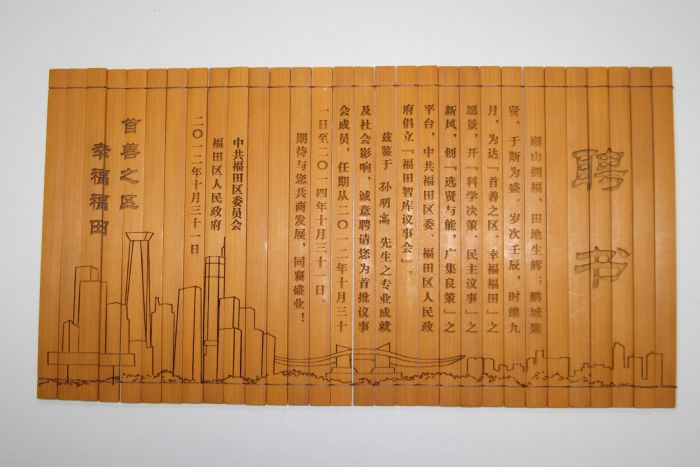 聘书
湖山拥福，田地生辉；鹏城聚
贤，于斯为盛。岁次壬辰，时维九
月，为达『首善之区、幸福福田』之
愿景，开『科学决策、民主议事』之
新风，创『选贤与能，广集良策』之
平台，中共福田区委、福田区人民政
府倡立『福田智库议事会』。
兹鉴于 孙明高 先生之专业成就
及社会影响，诚意聘请您为首批议事
会成员，任期从二〇一二年十月三十
一日至二〇一四年十月三十一日。
期待与您共商发展，同襄盛业！
中共福田区委员会
福田区人民政府
二〇一二年十月三十一日
首善之区
幸福福田